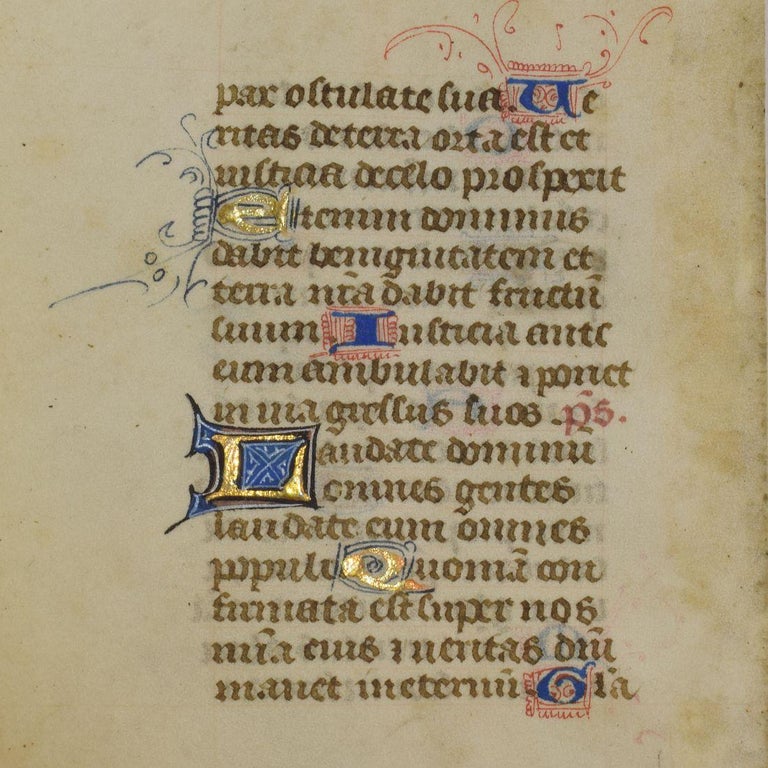 pax osculate sūt. Ue
ritas de terra orta est et
iusticia de celo prospexit
Etenim dominus
dabit benignitatem et
terra nr̄a dabit fructū
suum Iusticia ante
eum ambulabit ⁊ ponet
in uia gressus suos. ps̄.
Laudate dominū
omnes gentes
laudate eum om̄nes
populi Quoniā con
firmata est super nos
mīa eius ⁊ ueritas dn̄i
manet in eternū Gl̄a